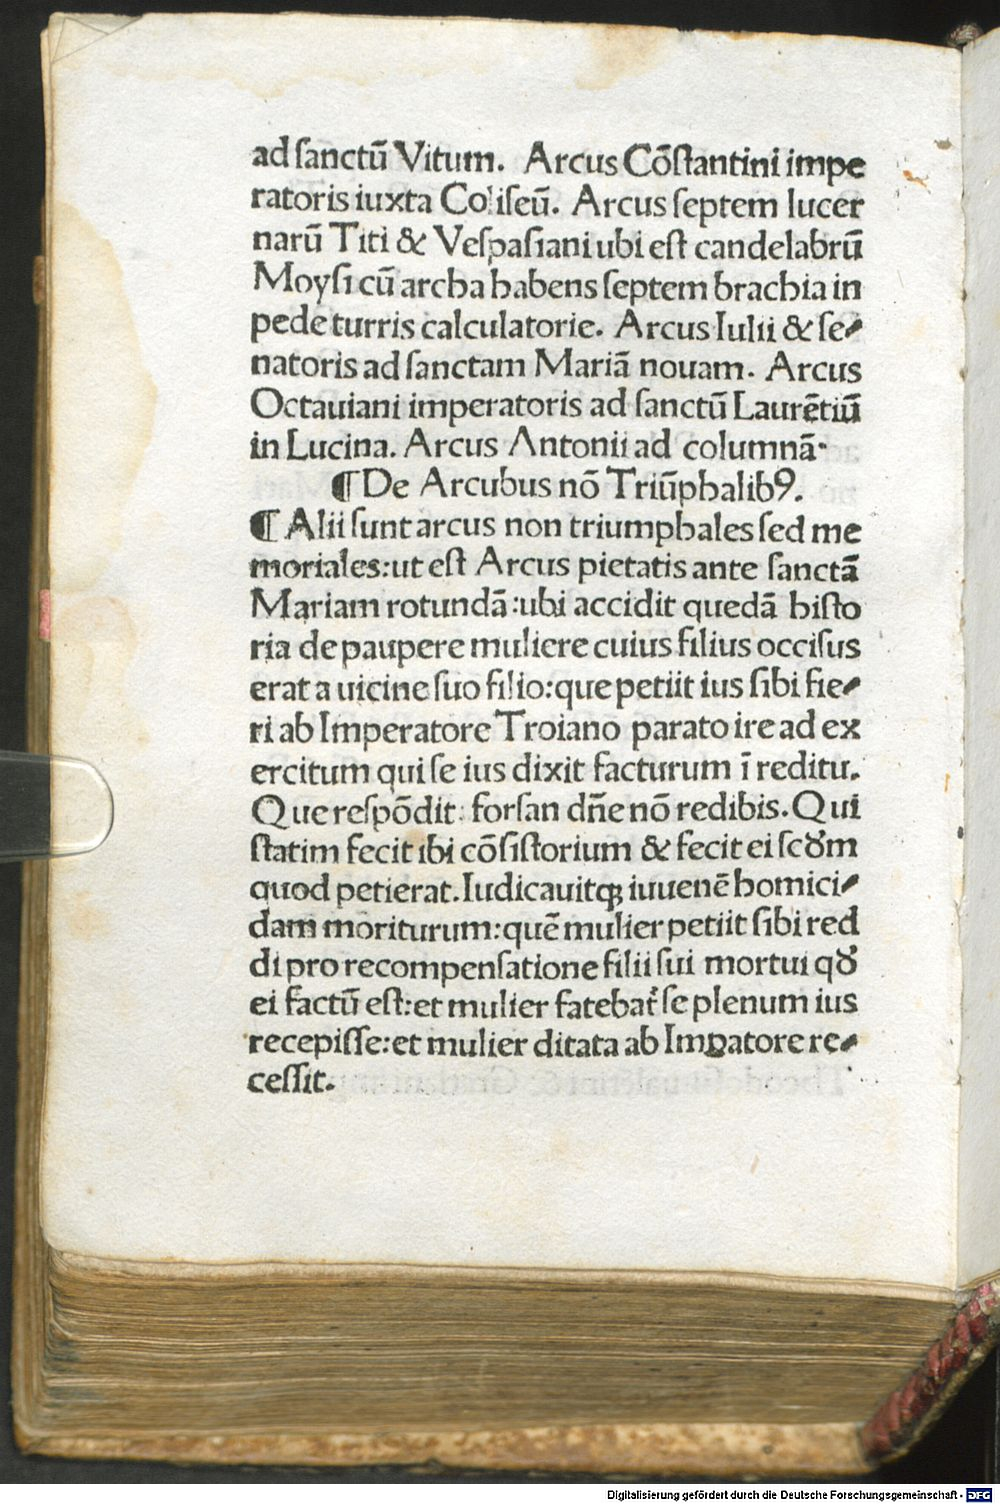 ad sanctū Vitum. Arcus Cōstantini impe
ratoris iuxta Coliseū. Arcus septem lucer
narū Titi & Vespasiani ubi est candelabrū
Moysi cū archa habens septem brachia in
pede turris calculatorie. Arcus Iulii & se-
natoris ad sanctam Mariā nouam. Arcus
Octauiani imperatoris ad sanctū Laurētiū
in Lucina. Arcus Antonii ad columnā.
¶ De Arcubus nō Triūphalibꝰ.
¶ Alii sunt arcus non triumphales sed me
moriales: ut est Arcus pietatis ante sanctā
Mariam rotundā: ubi accidit quedā histo
ria de paupere muliere cuius filius occisus
erat a uicine suo filio: que petiit ius sibi fie-
ri ab Imperatore Troiano parato ire ad ex
ercitum qui se ius dixit facturum ī reditu.
Que respōdit: forsan dn̄e nō redibis. Qui
statim fecit ibi cōsistorium & fecit ei scꝺm
quod petierat. Iudicauitqꝫ iuuenē homici-
dam moriturum: quē mulier petiit sibi red
di pro recompensatione filii sui mortui qꝺ
ei factū est: et mulier fatebat᷑ se plenum ius
recepisse: et mulier ditata ab Imꝑatore re-
cessit.
Digitalisierung gefördert durch die Deutsche Forschungsgemeinschaft - DFG